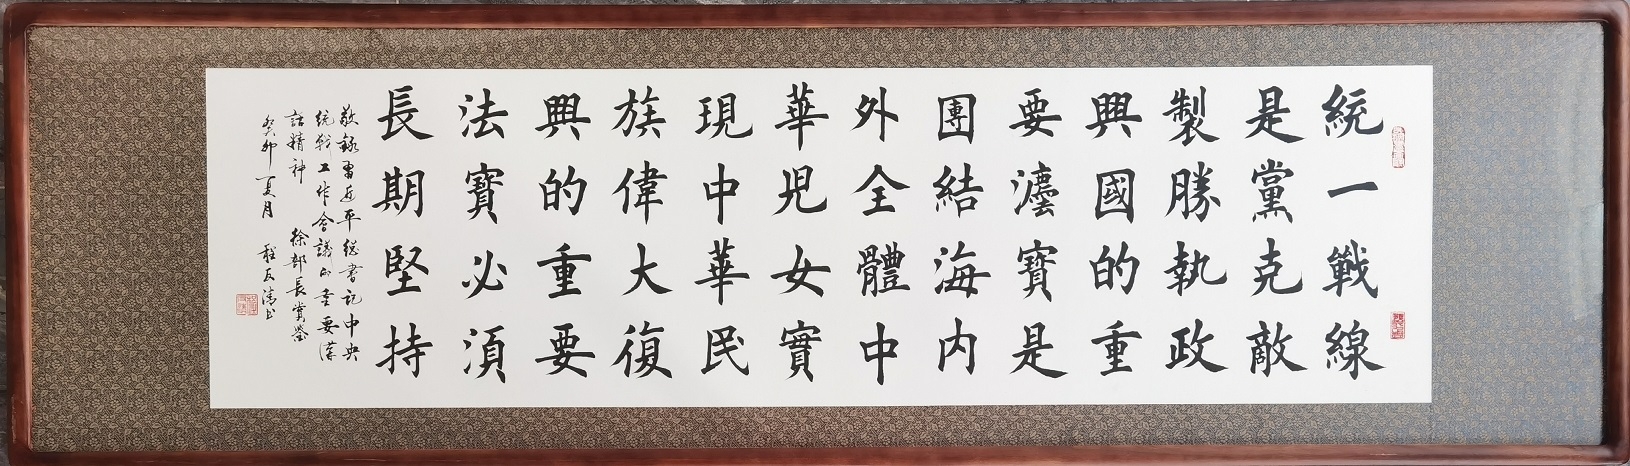 統一戰線
是黨克敵
製勝執政
興國的重
要灋寶是
團結海内
外全體中
華兒女實
現中華民
族偉大復
興的重要
法寶必須
長期堅持
敬録習近平總書記中央
統戰工作會議的重要講
話精神 徐部長賞鑒
癸卯夏月 程友清书